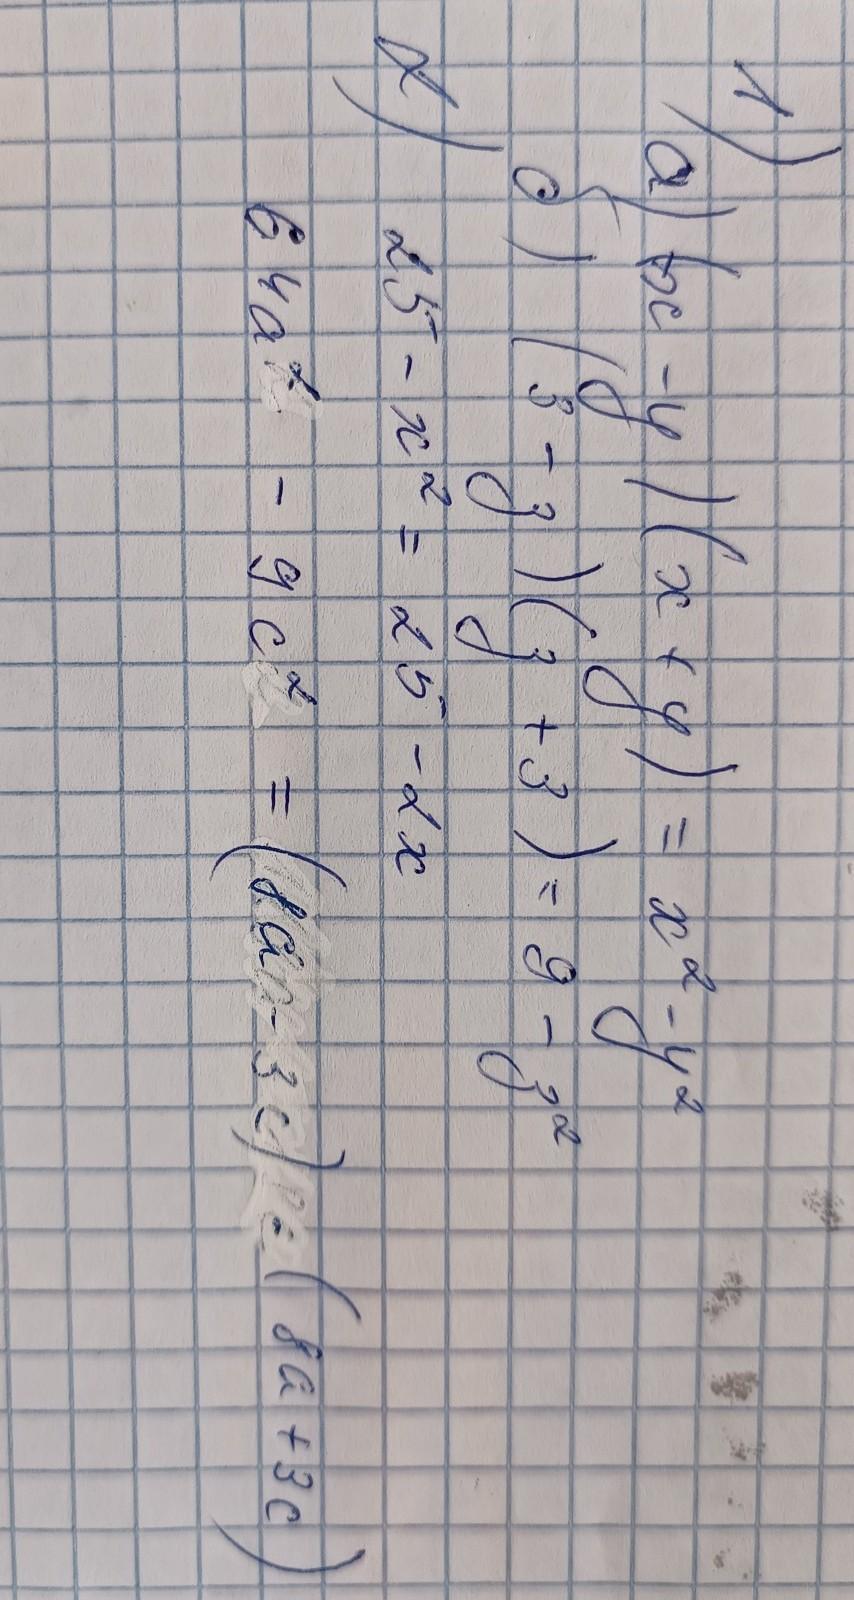 1) а) (x - y) (x + y) = x² - y²
б) (3 - z) (z + 3) = 9 - z²
2) 25 - x² = 25 - 2x
64a² - 9c² = (8a - 3c) (8a + 3c)